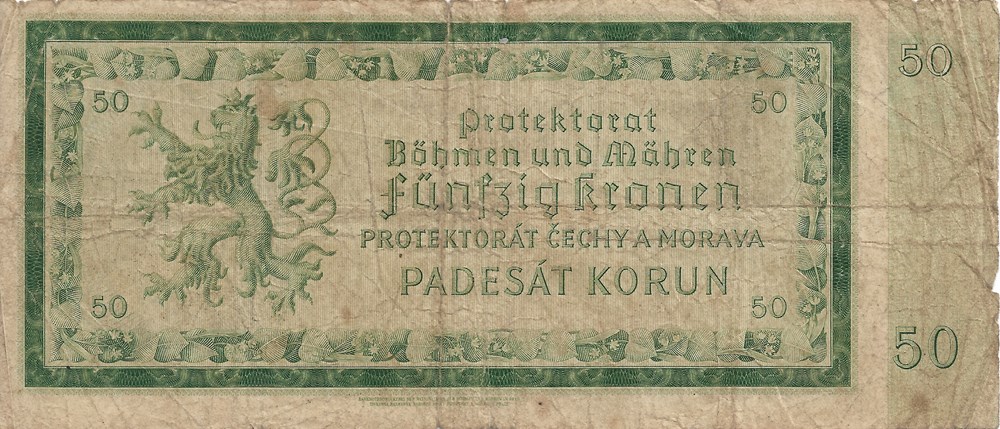 50
50
50
Protektorat
Böhmen und Mähren
Fünfzig Kronen
PROTEKTORÁT ČECHY A MORAVA
PADESÁT KORUN
50
50
50